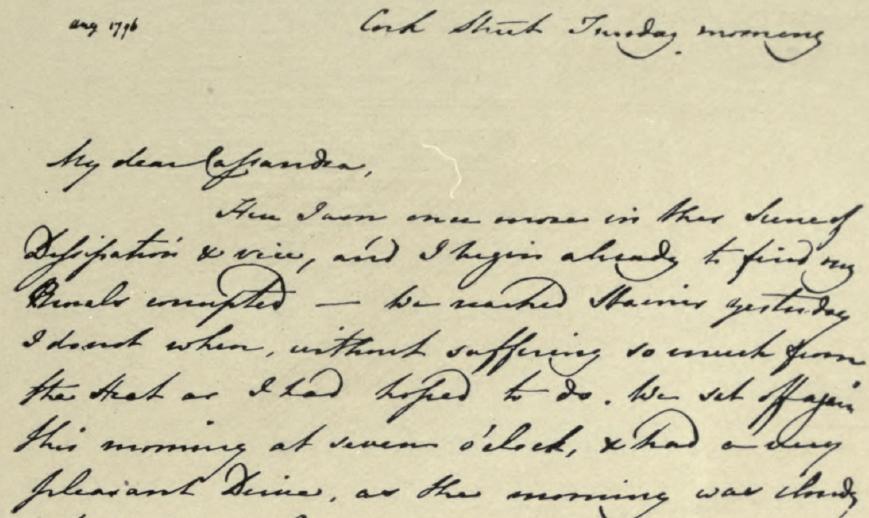 Aug 1796
Cork Street Tuesday morning
My dear Cassandra,
Here I am once more in this Scene of
Dissipation & vice, and I begin already to find my
Morals corrupted — We reached Staines yesterday
I do not when, without suffering so much from
the Heat as I had hoped to do. We set off again
this morning at seven o'clock, & had a very
pleasant Drive, as the morning was cloudy